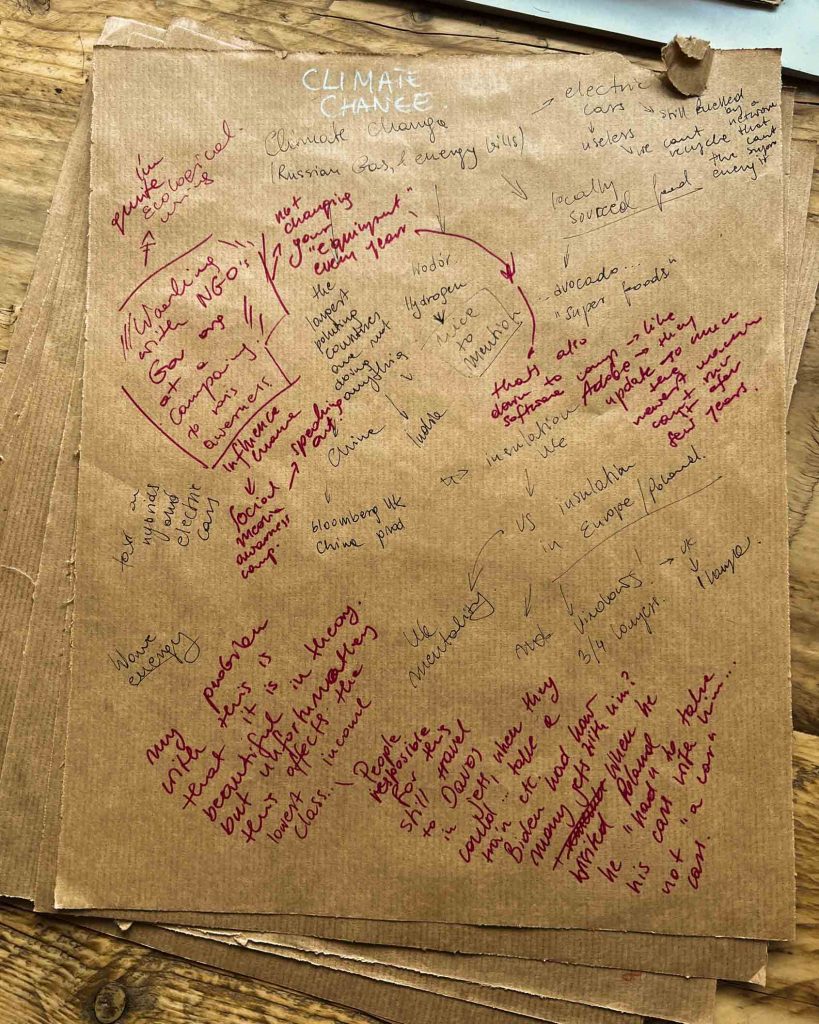 CLIMATE
CHANGE.
Climate change
(Russian Gas, & energy bills)
→ electric
cars
↓
useless
↘ still fucked
by a
network
that
the cant
energy it
↘ we cant
recycle
locally
sourced food
↓
avocado...
"super foods"
I'm
quite
ecological
using
Working
with NGO's
Gov org
at a
company!
to rais
awerness
not
changing
your
"equimpent"
every years!
the
largest
poluting
countries
are not
doing
anything
China
India
↓
bloomberg UK
China prod
wodór
Hydrogen
nice
to
mention
thats also
down to
software comp → like
Adobe → they
update so much
newest
cant run
after
few years.
Influence
speaking
out!
Social
media
awerness
camp.
hybrids
and
electric
cars
↳ insulation
UK
↓
vs insulation
in Europe/Poland.
UK
mentality
Windows!
3/4 layers.
→ UK
↓
1 layer
Wave
energy
my problem
with this is
that it is
beautiful in theory.
but unfortunatley
this affects the
lowest income
class..
People
responsible
for this
still travel
to Davos
in jets, when they
could... take a
train etc.
Biden had how
many jets with him?
when he
visited Poland
he "had" to take
his cars with him...
not "a car"
cars.